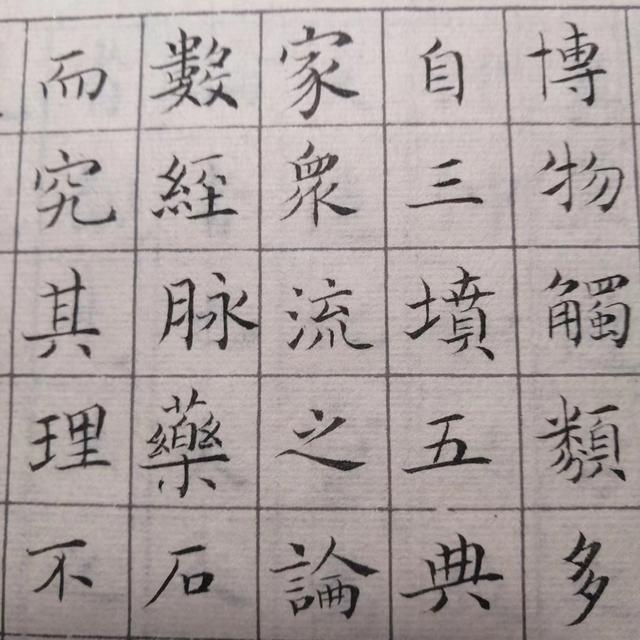 博物觸類多
自三墳五典
家衆流之論
數經脉藥石
而究其理不